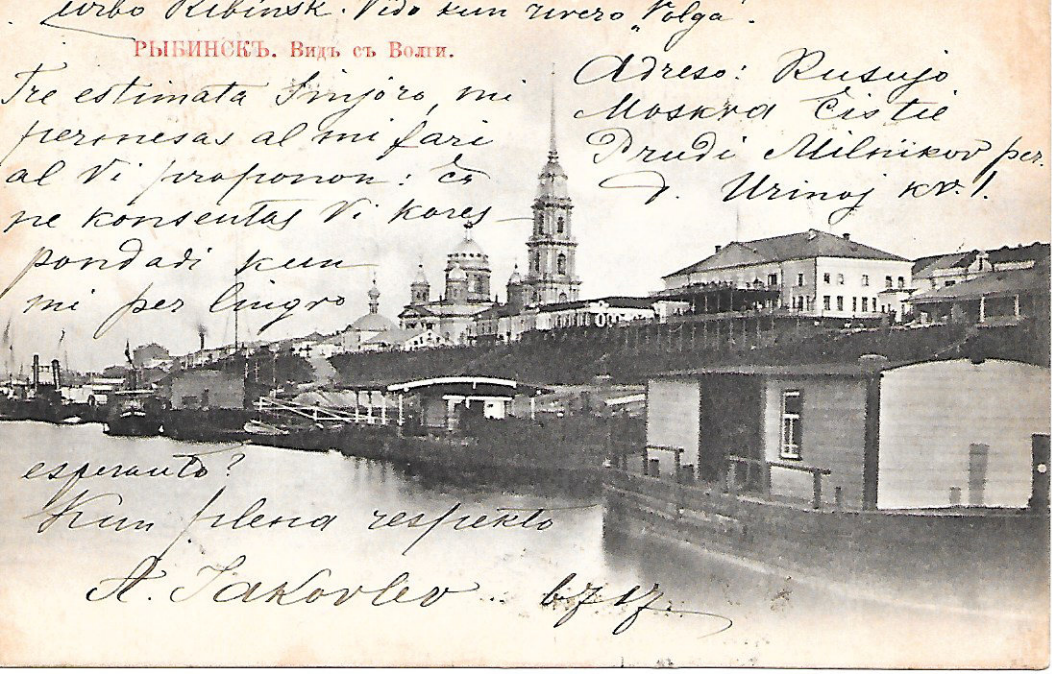 urbo Ribinsk. Vido kun rivero "Volga".
РЫБИНСКЪ. Видъ съ Волги.
Tre estimata Sinjoro, mi
permesas al mi fari
al Vi proponon: ĉu
ne konsentas Vi kores-
pondadi kun
mi per lingvo
esperanto?
Kun plena respekto
A. Jakovlev
Adreso: Rusujo
Moskva Ĉistie
Prudi Milnikov per.
d. Urinoj kv. 1.